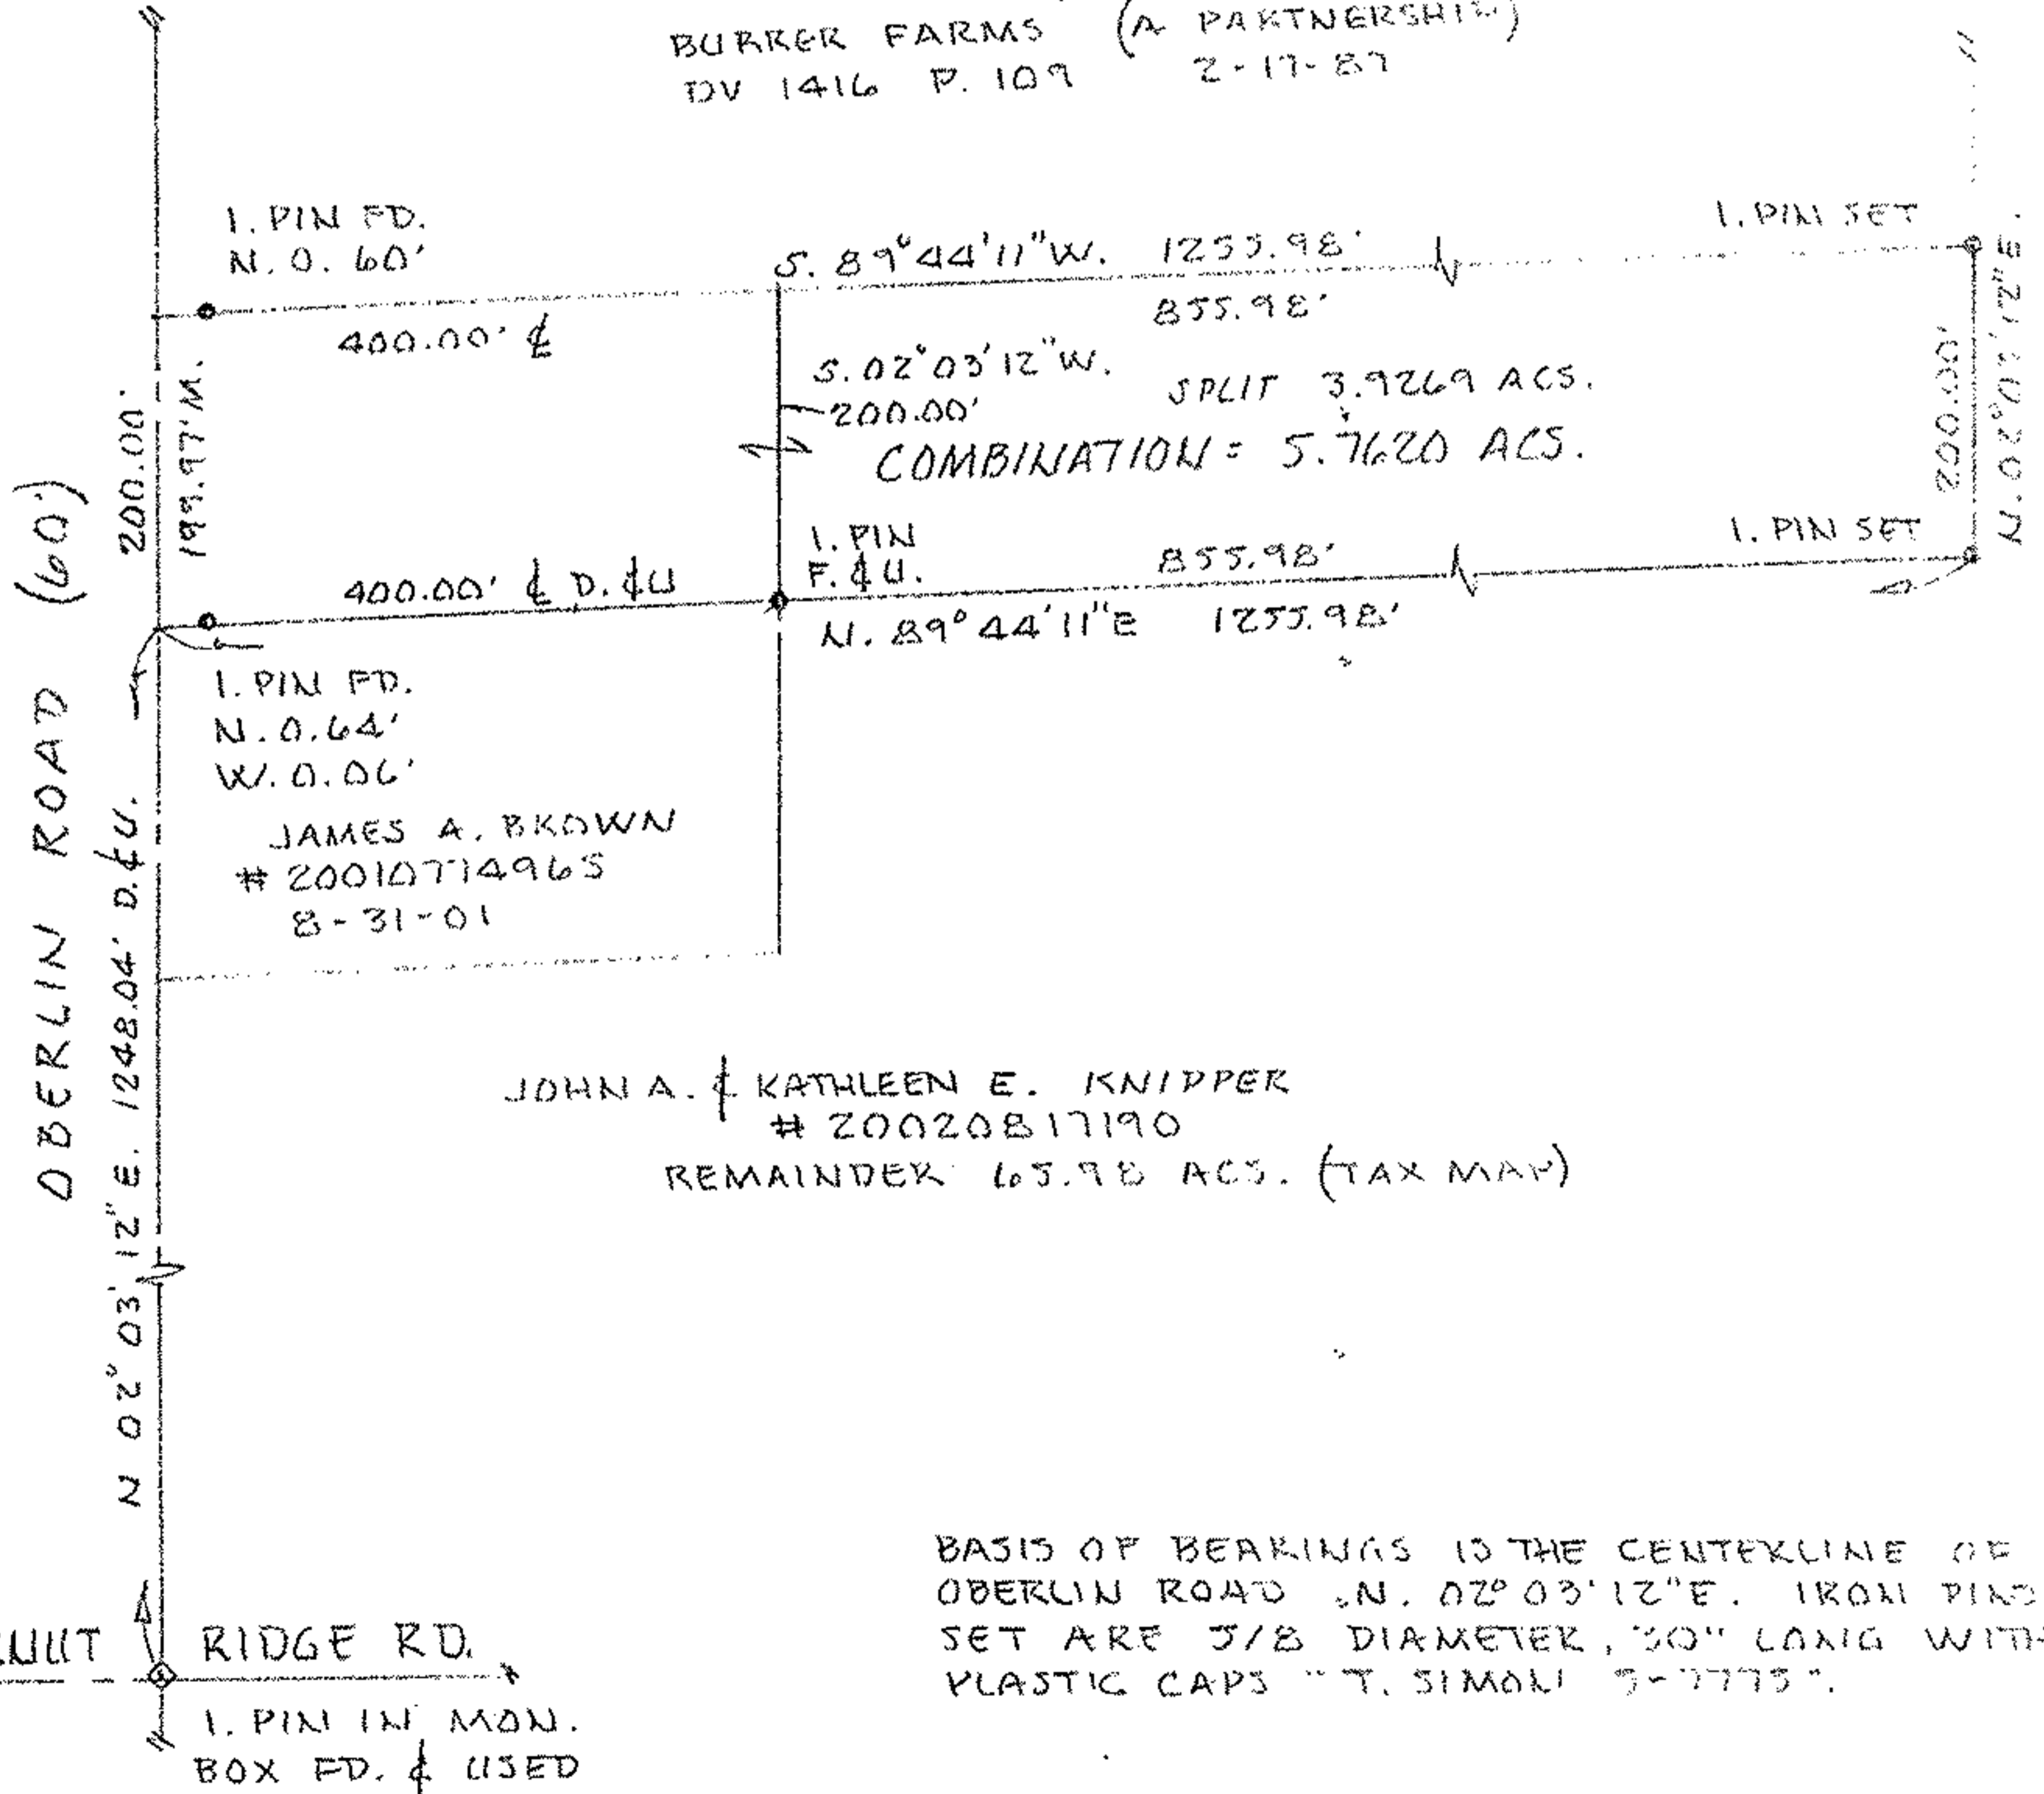 BURRER FARMS (A PARTNERSHIP)
DV 1416 P. 109 2-17-87
I. PIN FD.
N. 0.60'
S. 89°44'11"W. 1255.98'
I. PIN SET
400.00' ⅊
855.98'
S. 02°03'12"W.
200.00'
SPLIT 3.9269 ACS.
COMBINATION = 5.7620 ACS.
200.00'
199.97' M.
N. 02°03'12" E.
200.00'
OBERLIN ROAD (60')
400.00' ⅊ D. & U
I. PIN
F. & U.
855.98'
I. PIN SET
N. 89°44'11"E 1255.98'
I. PIN FD.
N. 0.64'
W. 0.06'
JAMES A. BROWN
# 20010774965
8-31-01
N 02° 03' 12" E. 1248.04' D. & U.
JOHN A. & KATHLEEN E. KNIPPER
# 20020817190
REMAINDER 65.98 ACS. (TAX MAP)
BASIS OF BEARINGS IS THE CENTERLINE OF
OBERLIN ROAD N. 02°03'12"E. IRON PINS
SET ARE 5/8 DIAMETER, 30" LONG WITH
PLASTIC CAPS "T. SIMON
RIDGE RD.
I. PIN IN MON.
BOX FD. & USED